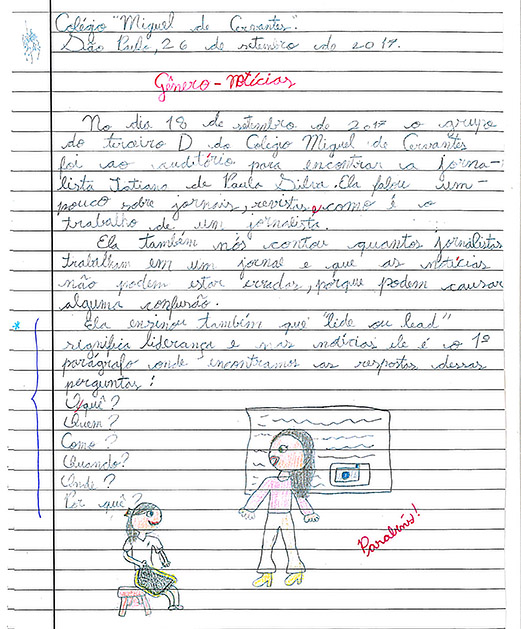 Colégio "Miguel de Cervantes".
São Paulo, 26 de setembro de 2017.
Gênero - Notícias
No dia 18 de setembro de 2017 o grupo
do terceiro D do Colégio Miguel de Cervantes
foi ao auditório para encontrar a jorna-
lista Tatiana de Paula Silva. Ela falou um
pouco sobre jornais, revistas e como é o
trabalho de um jornalista.
Ela também nós contou quantos jornalistas
trabalham em um jornal e que as notícias
não podem estar erradas, porque podem causar
alguma confusão.
* Ela ensinou também que "lide ou lead"
significa liderança e nas notícias ele é o 1º
parágrafo onde encontramos as respostas dessas
perguntas:
O quê?
Quem?
Como?
Quando?
Onde?
Por quê?
Parabéns!